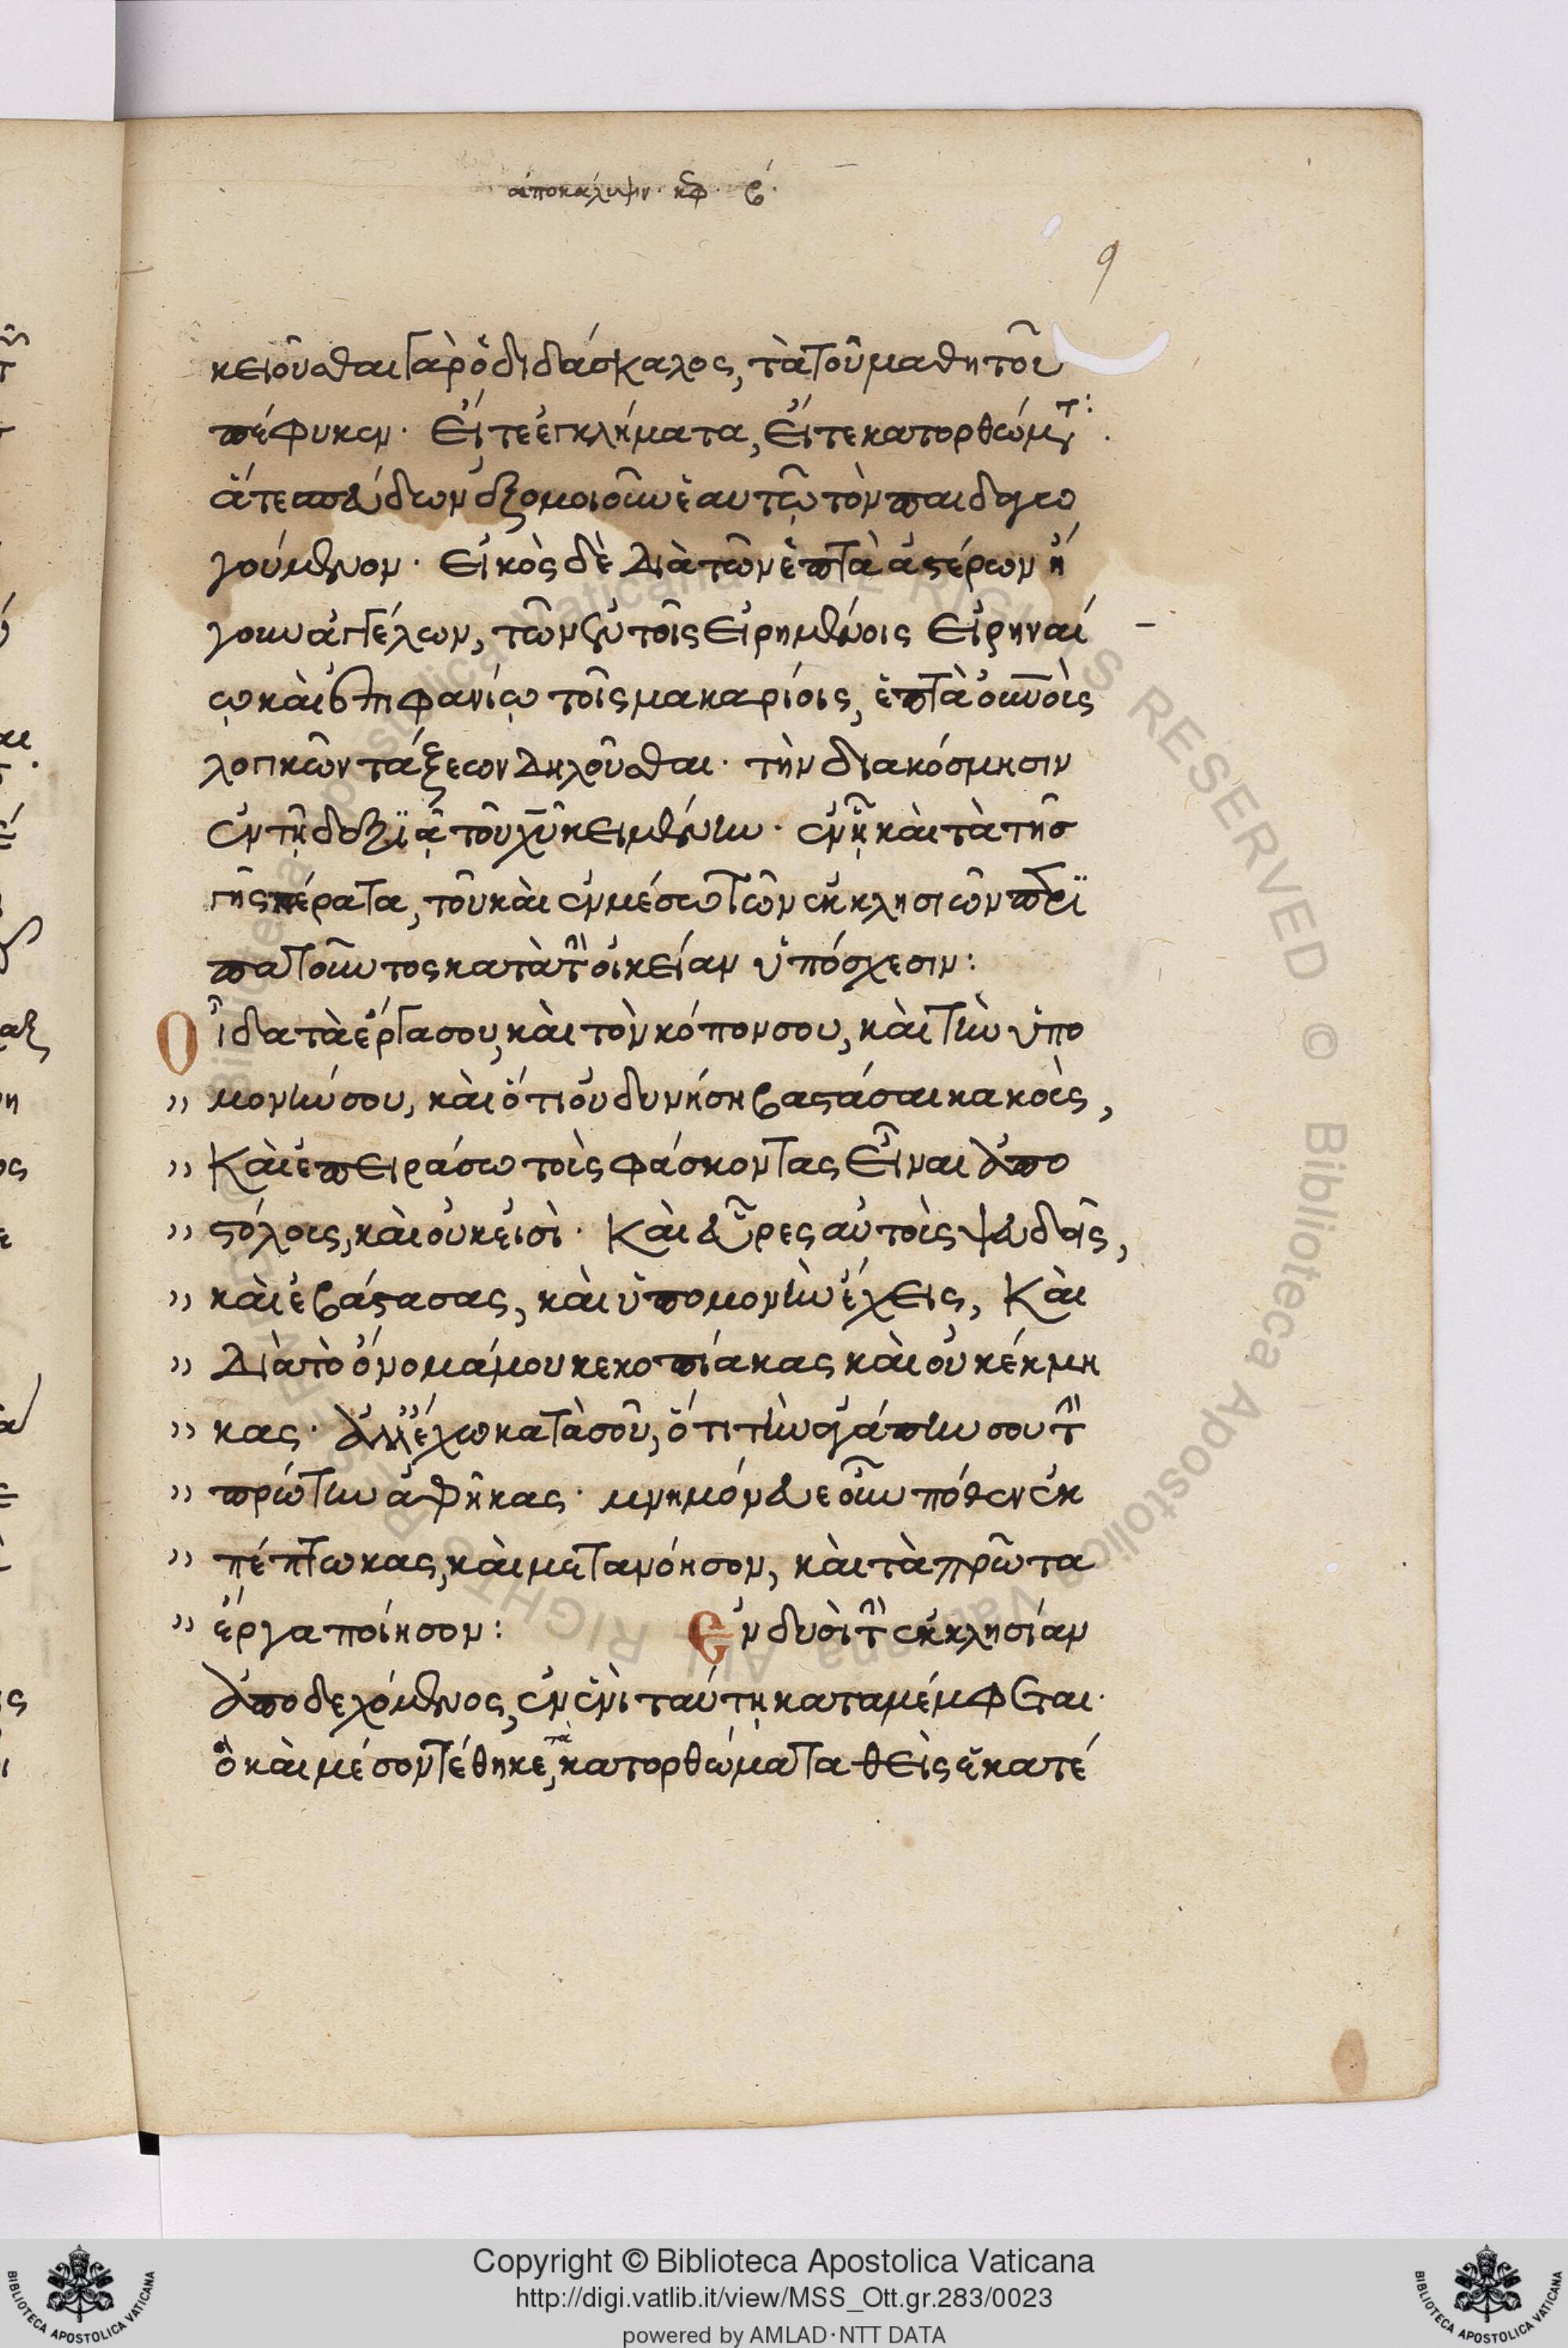 ἀποκαλύψην· κεφ· β·
9
κειοῦσθαι γὰρ ὁ διδάσκαλος, τὰ τοῦ μαθητοῦ
πέφυκεν· Εἴτε ἐγκλήματα, Εἴτε κατορθώματ:
ἅτε σπεύδων ἐξομοιοῦν ἑαυτῷ τὸν παιδαγω
γούμενον· Εἰκὸς δὲ Διὰ τῶν ἑπτὰ ἀστέρων ἤ
γουν ἀγγέλων, τῶν ἐν τοῖς Εἰρημένοις Εἰρηναί
ῳ καὶ ἐπιφανίῳ τοῖς μακαρίοις,
λογικῶν τάξεων Δηλοῦσθαι· τὴν διακόσμησιν
ἐν τῇ δεξϊᾷ τοῦ χυ κειμένην· ἐν ᾗ καὶ τὰ τῆσ
γῆς πέρατα, τοῦ καὶ ἐν μέσω τῶν ἐκκλησιῶν περϊ
πατοῦντος κατὰ τὴν οἰκείαν ὑπόσχεσιν:
Οἶδα τὰ ἔργα σου, καὶ τὸν κόπον σου, καὶ τὴν ὑπο
" μονήν σου, καὶ ὅτι οὐ δυνήση βαστάσαι κακοὺς,
" Καὶ ἐπειράσω τοὺς φάσκοντας Εἶναι ἀπο
" στόλους, καὶ οὐκ εἰσὶ· Καὶ εὗρες αὐτοὺς ψευδεῖς,
" καὶ ἐβάστασας, καὶ ὑπομονὴν ἔχεις, Καὶ
" Διὰ τὸ ὄνομά μου κεκοπίακας καὶ οὐ κέκμη
" κας· ἀλλ' ἔχω κατὰ σοῦ, ὅτι τὴν ἀγάπην σου τὴν
" πρώτην ἀφῆκας· μνημόνευε οὖν πόθεν ἐκ
" πέπτωκας, καὶ μετανόησον, καὶ τὰ πρῶτα
" ἔργα ποίησον: Ἐν δυσὶ τὴν ἐκκλησίαν
ἀποδεχόμενος, ἐν ἑνὶ ταύτῃ καταμέμφεται·
ὃ καὶ μέσον τέθηκε, τὰ κατορθώματα θεὶς ἑκατέ
Copyright © Biblioteca Apostolica Vaticana
http://digi.vatlib.it/view/MSS_Ott.gr.283/0023
powered by AMLAD·NTT DATA